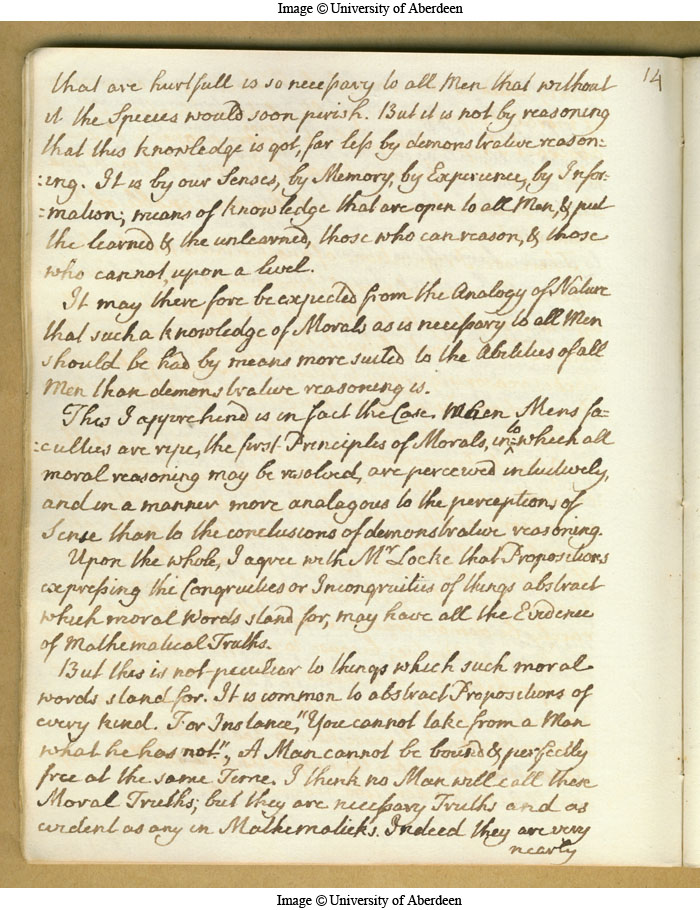 Image © University of Aberdeen
14
that are hurtfull is so necessary to all Men that without
it the Species would soon perish. But it is not by reasoning
that this knowledge is got, far less by demonstrative reason:
:ing. It is by our Senses, by Memory, by Experience, by Infor:
:mation; means of knowledge that are open to all Men, & put
the learned & the unlearned, those who can reason, & those
who cannot, upon a level.
It may therefore be expected from the Analogy of Nature
that such a knowledge of Morals as is necessary to all Men
should be had by means more suited to the Abilities of all
Men than demonstrative reasoning is.
This I apprehend is in fact the Case. When Mens fa:
:culties are ripe, the first Principles of Morals, into which all
moral reasoning may be resolved, are perceived intuitively,
and in a manner more analagous to the perceptions of
Sense than to the conclusions of demonstrative reasoning.
Upon the whole, I agree with Mr Locke that Propositions
expressing the Congruities or Incongruities of things abstract
which moral words stand for, may have all the Evidence
of Mathematical Truths.
But this is not peculiar to things which such moral
words stand for. It is common to abstract Propositions of
every kind. For Instance, "You cannot take from a Man
what he has not.", A Man cannot be bound & perfectly
free at the same Time. I think no Man will call these
Moral Truths; but they are necessary Truths and as
evident as any in Mathematicks. Indeed they are very
nearly
Image © University of Aberdeen